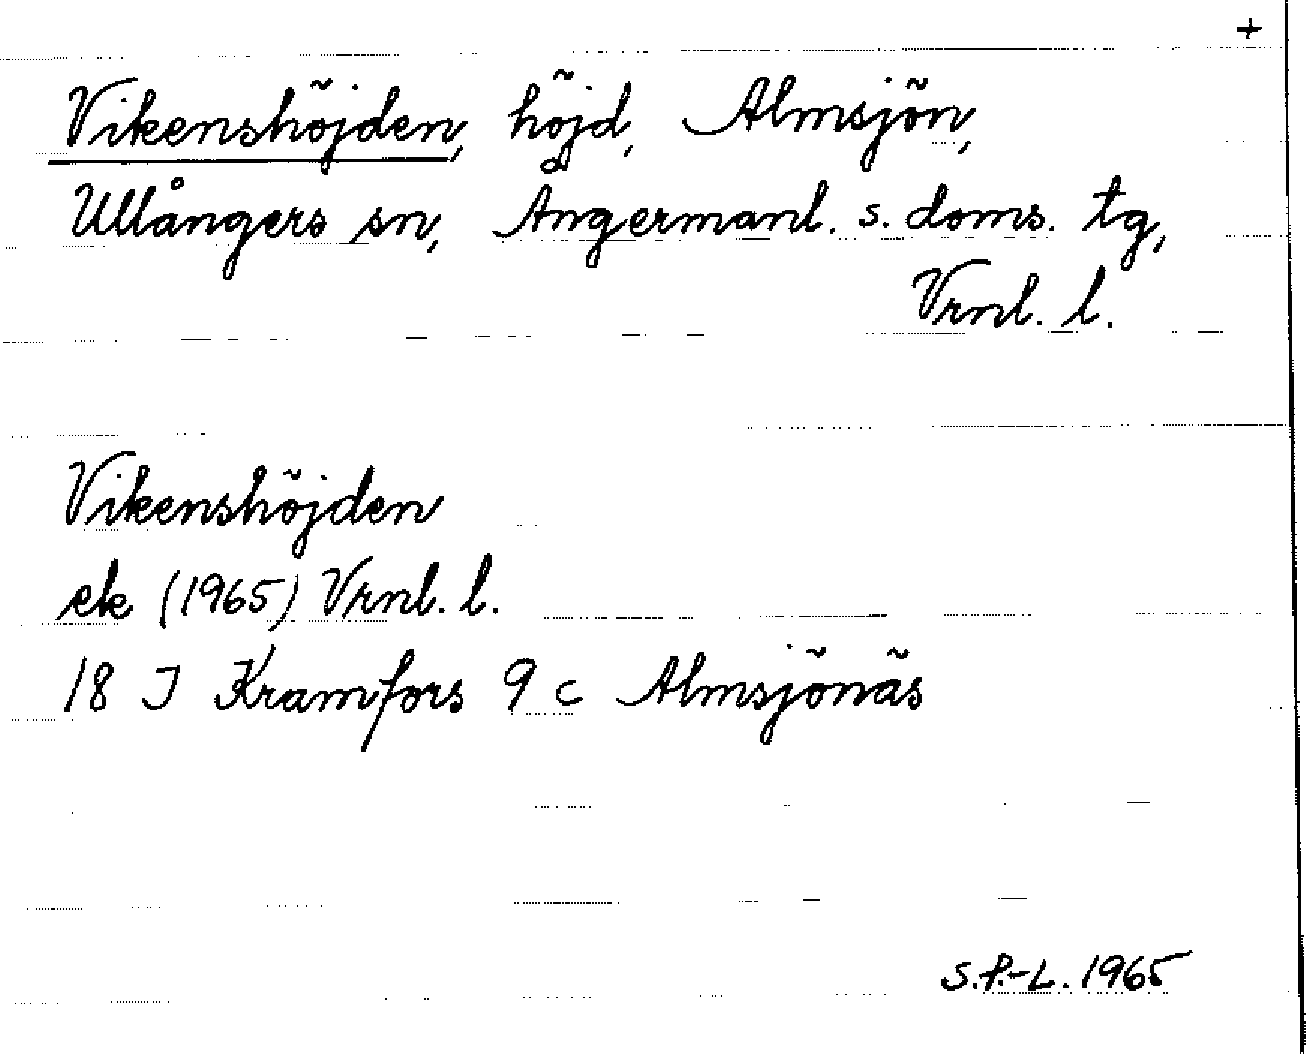 +
Vikenshöjden, höjd, Almsjön,
Ullångers sn, Ångermanl. s. doms. tg,
Vrnl. l.
Vikenshöjden
ek (1965) Vrnl. l.
18 J Kramfors 9 c Almsjönäs
S.P.-L. 1965